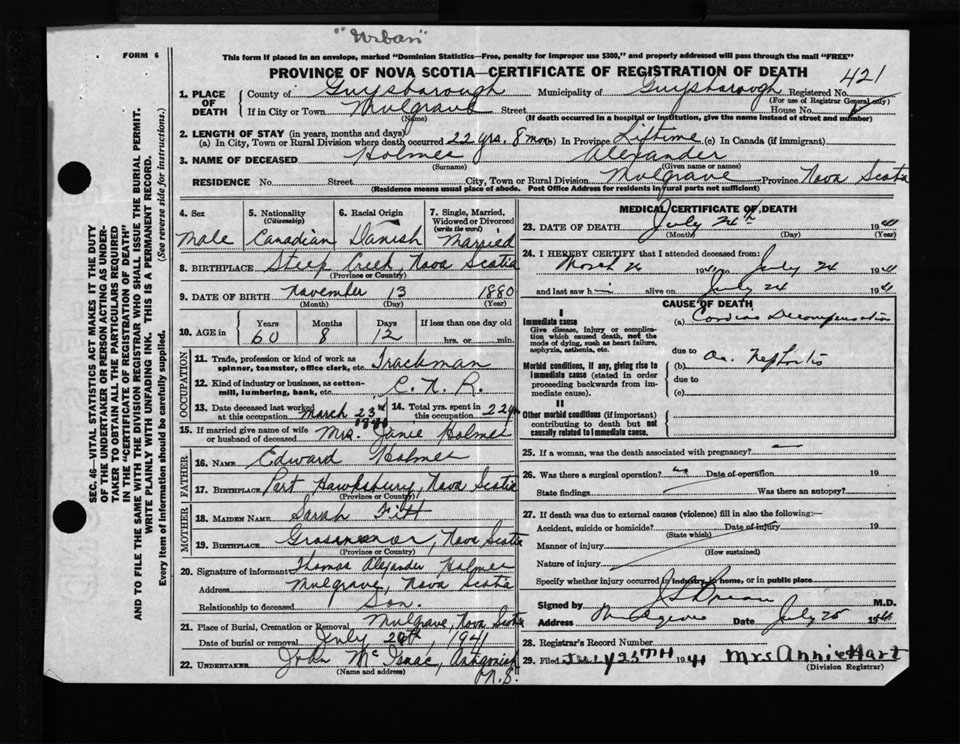 "Urban"
FORM 6
This form if placed in an envelope, marked "Dominion Statistics—Free, penalty for improper use $300," and properly addressed will pass through the mail "FREE"
PROVINCE OF NOVA SCOTIA—CERTIFICATE OF REGISTRATION OF DEATH
421
1. PLACE OF DEATH County of Guysborough Municipality of Guysborough Registered No.
(For use of Registrar General only)
If in City or Town Mulgrave Street House No.
(Name) (If death occurred in a hospital or institution, give the name instead of street and number)
2. LENGTH OF STAY (in years, months and days)
(a) In City, Town or Rural Division where death occurred 22 yrs. 8 mo (b) In Province Liftime (c) In Canada (if immigrant)
3. NAME OF DECEASED Holmes Alexander
(Surname) (Given name or names)
RESIDENCE No. Street City, Town or Rural Division Mulgrave Province Nova Scotia
(Residence means usual place of abode. Post Office Address for residents in rural parts not sufficient)
4. Sex Male
5. Nationality (Citizenship) Canadian
6. Racial Origin Danish
7. Single, Married, Widowed or Divorced (write the word) Married
8. BIRTHPLACE Steep Creek Nova Scotia
(Province or Country)
9. DATE OF BIRTH November 13 1880
(Month) (Day) (Year)
10. AGE in Years 60 Months 8 Days 12 If less than one day old hrs. or min.
OCCUPATION
11. Trade, profession or kind of work as spinner, teamster, office clerk, etc. Trackman
12. Kind of industry or business, as cotton-mill, lumbering, bank, etc. C. N. R.
13. Date deceased last worked at this occupation March 23rd 1941
14. Total yrs. spent in this occupation 22 yrs
15. If married give name of wife or husband of deceased Mrs. Janie Holmes
FATHER
16. NAME Edward Holmes
17. BIRTHPLACE Port Hawksbury, Nova Scotia
(Province or Country)
MOTHER
18. MAIDEN NAME Sarah
19. BIRTHPLACE Nova Scotia
(Province or Country)
20. Signature of informant Thomas Alexander Holmes
Address Mulgrave, Nova Scotia
Relationship to deceased Son.
21. Place of Burial, Cremation or Removal Mulgrave, Nova Scotia
Date of burial or removal July 1941
22. UNDERTAKER John McIsaac, Antigonish N.S.
(Name and address)
MEDICAL CERTIFICATE OF DEATH
23. DATE OF DEATH July 24th 19
(Month) (Day) (Year)
24. I HEREBY CERTIFY that I attended deceased from:
March 1941 to July 24 1941
and last saw h alive on July 24 1941
CAUSE OF DEATH
I
Immediate cause
Give disease, injury or complication which caused death, not the mode of dying, such as heart failure, asphyxia, asthenia, etc.
(a) Cardiac Decompensation
due to
Morbid conditions, if any, giving rise to immediate cause (stated in order proceeding backwards from immediate cause).
(b) Nephritis
due to
(c)
II
Other morbid conditions (if important) contributing to death but not causally related to immediate cause.
25. If a woman, was the death associated with pregnancy?
26. Was there a surgical operation? no Date of operation 19
State findings Was there an autopsy?
27. If death was due to external causes (violence) fill in also the following:—
Accident, suicide or homicide? Date of injury 19
(State which)
Manner of injury
(How sustained)
Nature of injury
Specify whether injury occurred in industry, in home, or in public place
Signed by M.D.
Address Mulgrave Date July 25 1941
28. Registrar's Record Number
29. Filed JULY 25TH 1941 Mrs Annie Hart
(Division Registrar)
SEC. 46—VITAL STATISTICS ACT MAKES IT THE DUTY
OF THE UNDERTAKER OR PERSON ACTING AS UNDER-
TAKER TO OBTAIN ALL THE PARTICULARS REQUIRED
IN THE "CERTIFICATE OF REGISTRATION OF DEATH"
AND TO FILE THE SAME WITH THE DIVISION REGISTRAR WHO SHALL ISSUE THE BURIAL PERMIT.
WRITE PLAINLY WITH UNFADING INK. THIS IS A PERMANENT RECORD.
Every item of information should be carefully supplied. (See reverse side for instructions.)